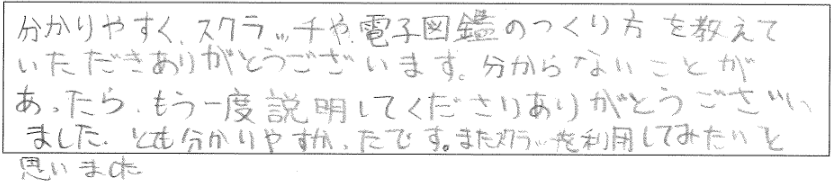 分かりやすく、スクラッチや、電子図鑑のつくり方を教えて
いただきありがとうございます。分からないことが
あったら、もう一度説明してくださりありがとうござい
ました。とても分かりやすかったです。またスクラッチを利用してみたいと
思いました